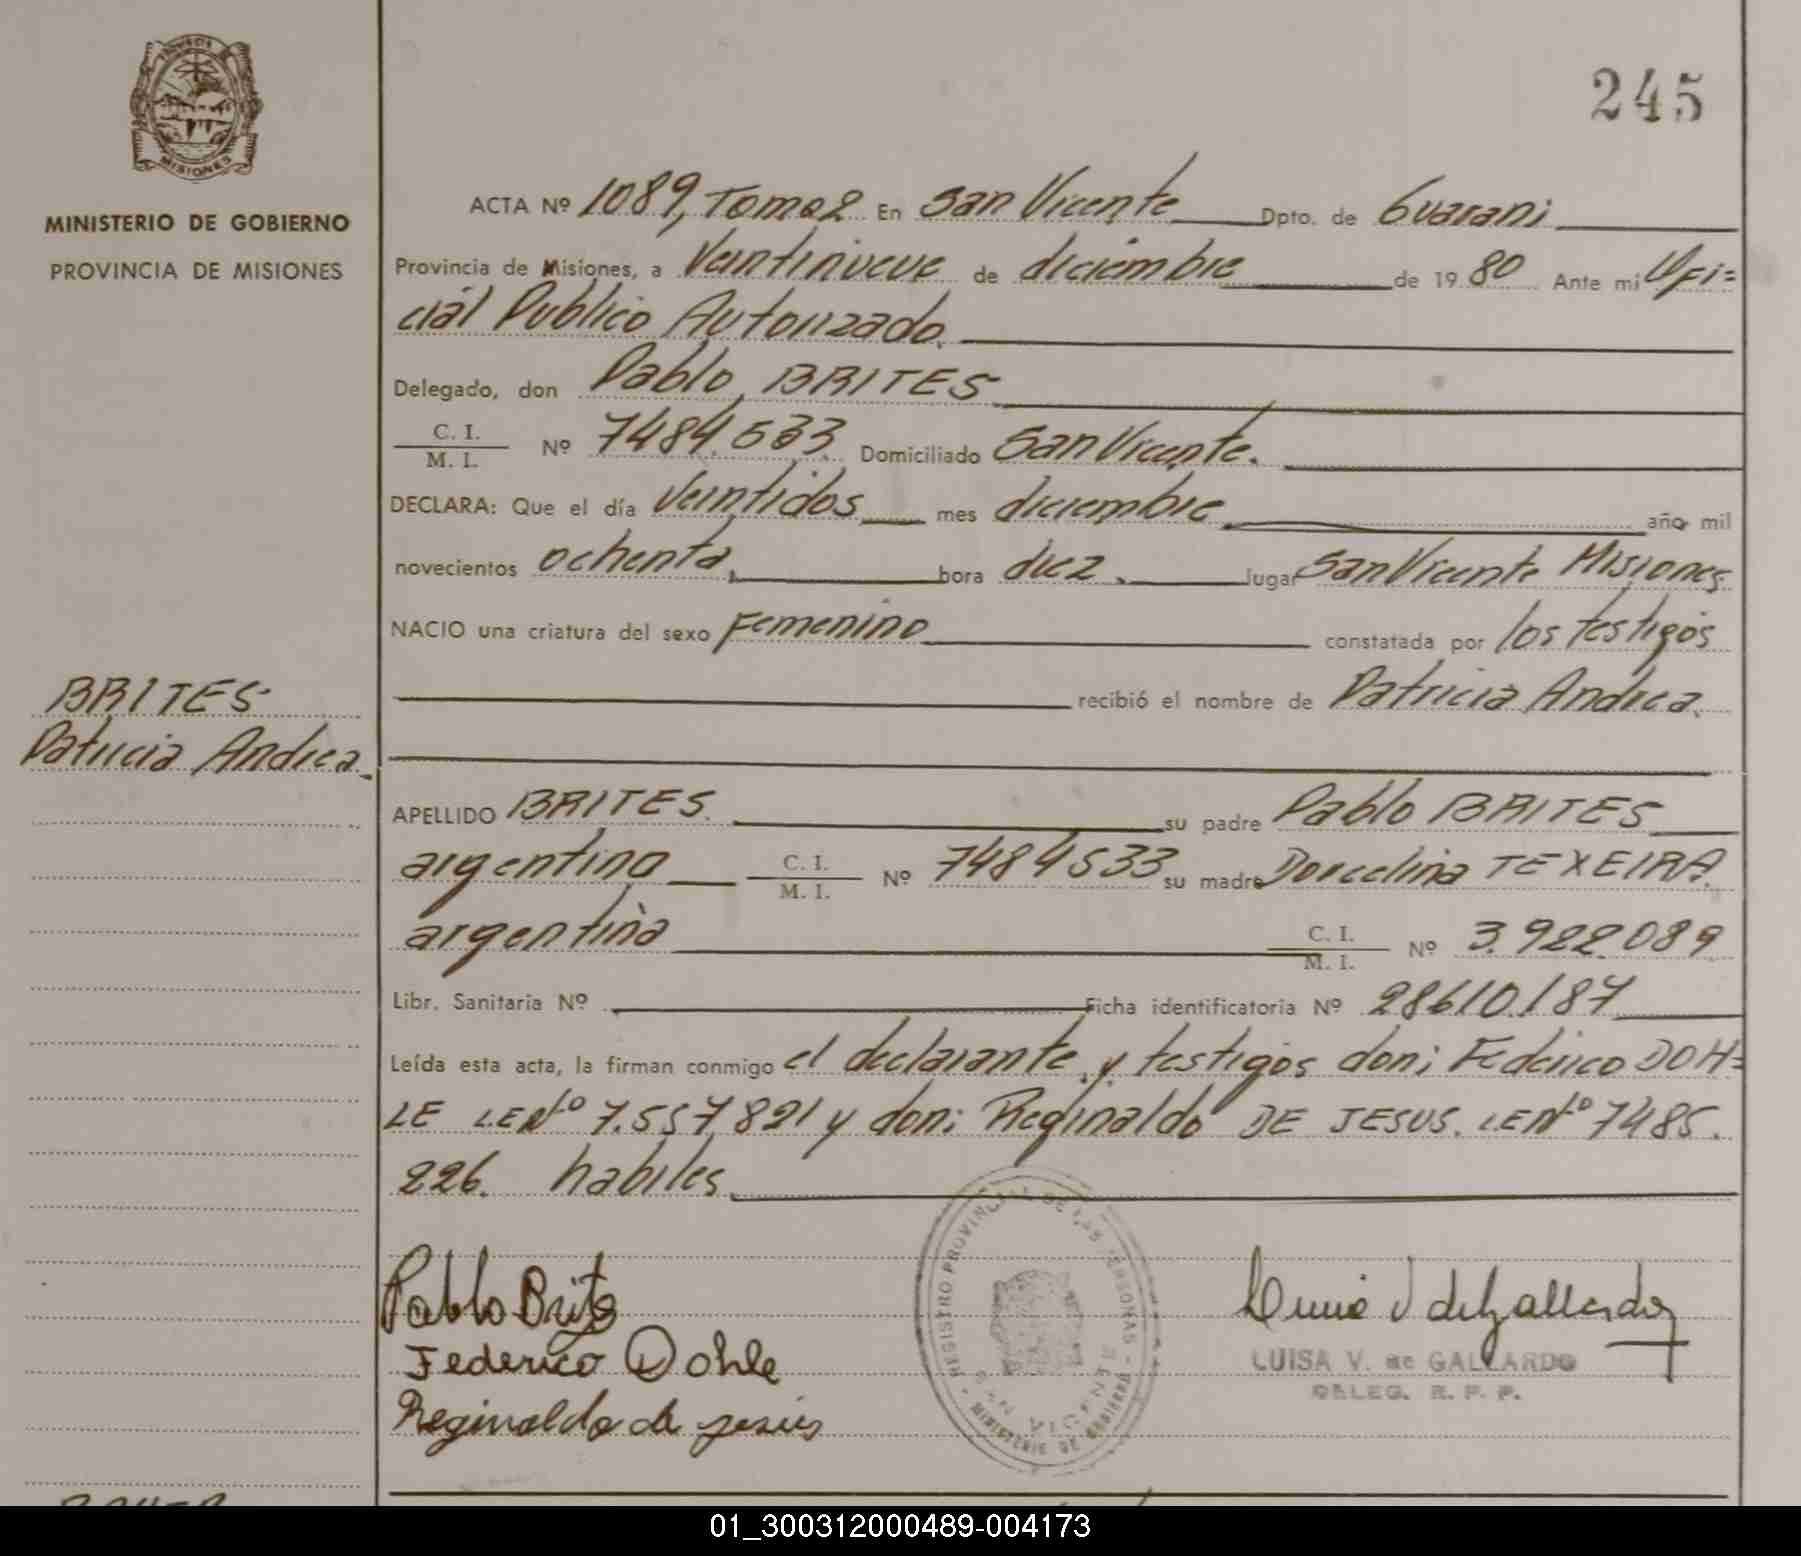 245
MISIONES
MINISTERIO DE GOBIERNO
PROVINCIA DE MISIONES
BRITES
Patricia Andrea
ACTA Nº 1089, Tomo 2 En San Vicente Dpto. de Guarani
Provincia de Misiones, a Veintinueve de diciembre de 19 80 Ante mi Ofi=
cial Publico Autorizado.
Delegado, don Pablo BRITES
C. I.
M. I. Nº 7484.533. Domiciliado San Vicente.
DECLARA: Que el día Veintidos mes diciembre año mil
novecientos ochenta, hora diez. lugar San Vicente Misiones
NACIO una criatura del sexo Femenino constatada por los testigos
recibió el nombre de Patricia Andrea.
APELLIDO BRITES. su padre Pablo BRITES
argentino C. I. M. I. Nº 7484533 su madre Dorcelina TEXEIRA.
argentina C. I. M. I. Nº 3.922.089
Libr. Sanitaria Nº Ficha identificatoria Nº 28610.187
Leída esta acta, la firman conmigo el declarante y testigos don; Federico DOH=
LE LE Nº 7.557,821 y don: Reginaldo DE JESUS. LE Nº 7485.
226. habiles
Pablo Brites
Federico Dohle
Reginaldo de jesús
REGISTRO PROVINCIAL DE LAS PERSONAS - MINISTERIO DE GOBIERNO
SAN VICENTE
LUISA V. de GALLARDO
DELEG. R. P. P.
01_300312000489-004173